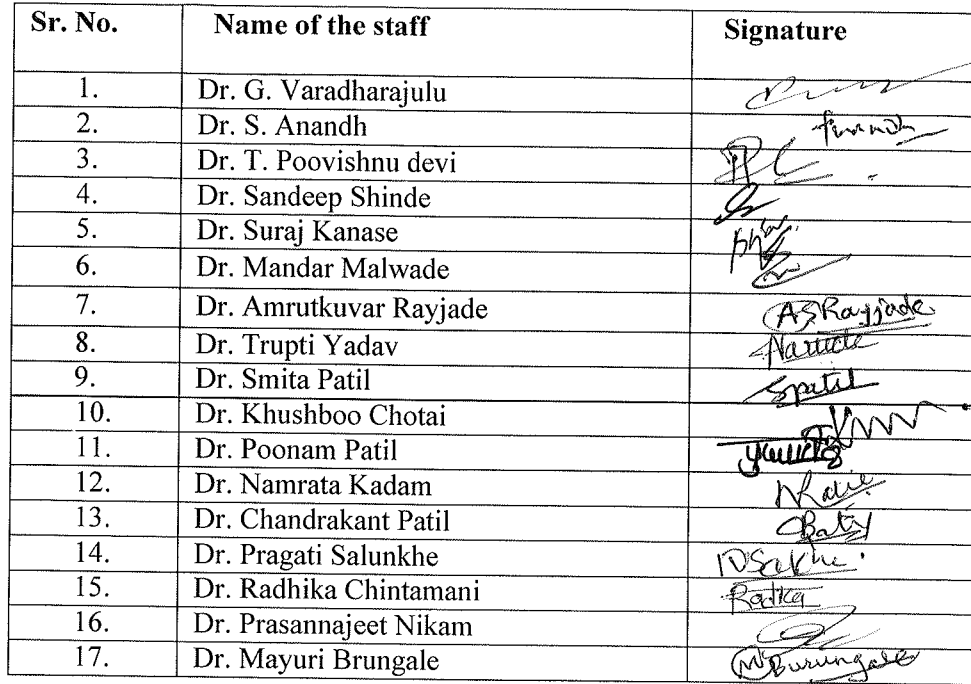 Sr. No. Name of the staff Signature
1. Dr. G. Varadharajulu
2. Dr. S. Anandh
3. Dr. T. Poovishnu devi
4. Dr. Sandeep Shinde
5. Dr. Suraj Kanase
6. Dr. Mandar Malwade
7. Dr. Amrutkuvar Rayjade ASRayjade
8. Dr. Trupti Yadav
9. Dr. Smita Patil Spatil
10. Dr. Khushboo Chotai
11. Dr. Poonam Patil
12. Dr. Namrata Kadam
13. Dr. Chandrakant Patil
14. Dr. Pragati Salunkhe
15. Dr. Radhika Chintamani
16. Dr. Prasannajeet Nikam
17. Dr. Mayuri Brungale Burungale